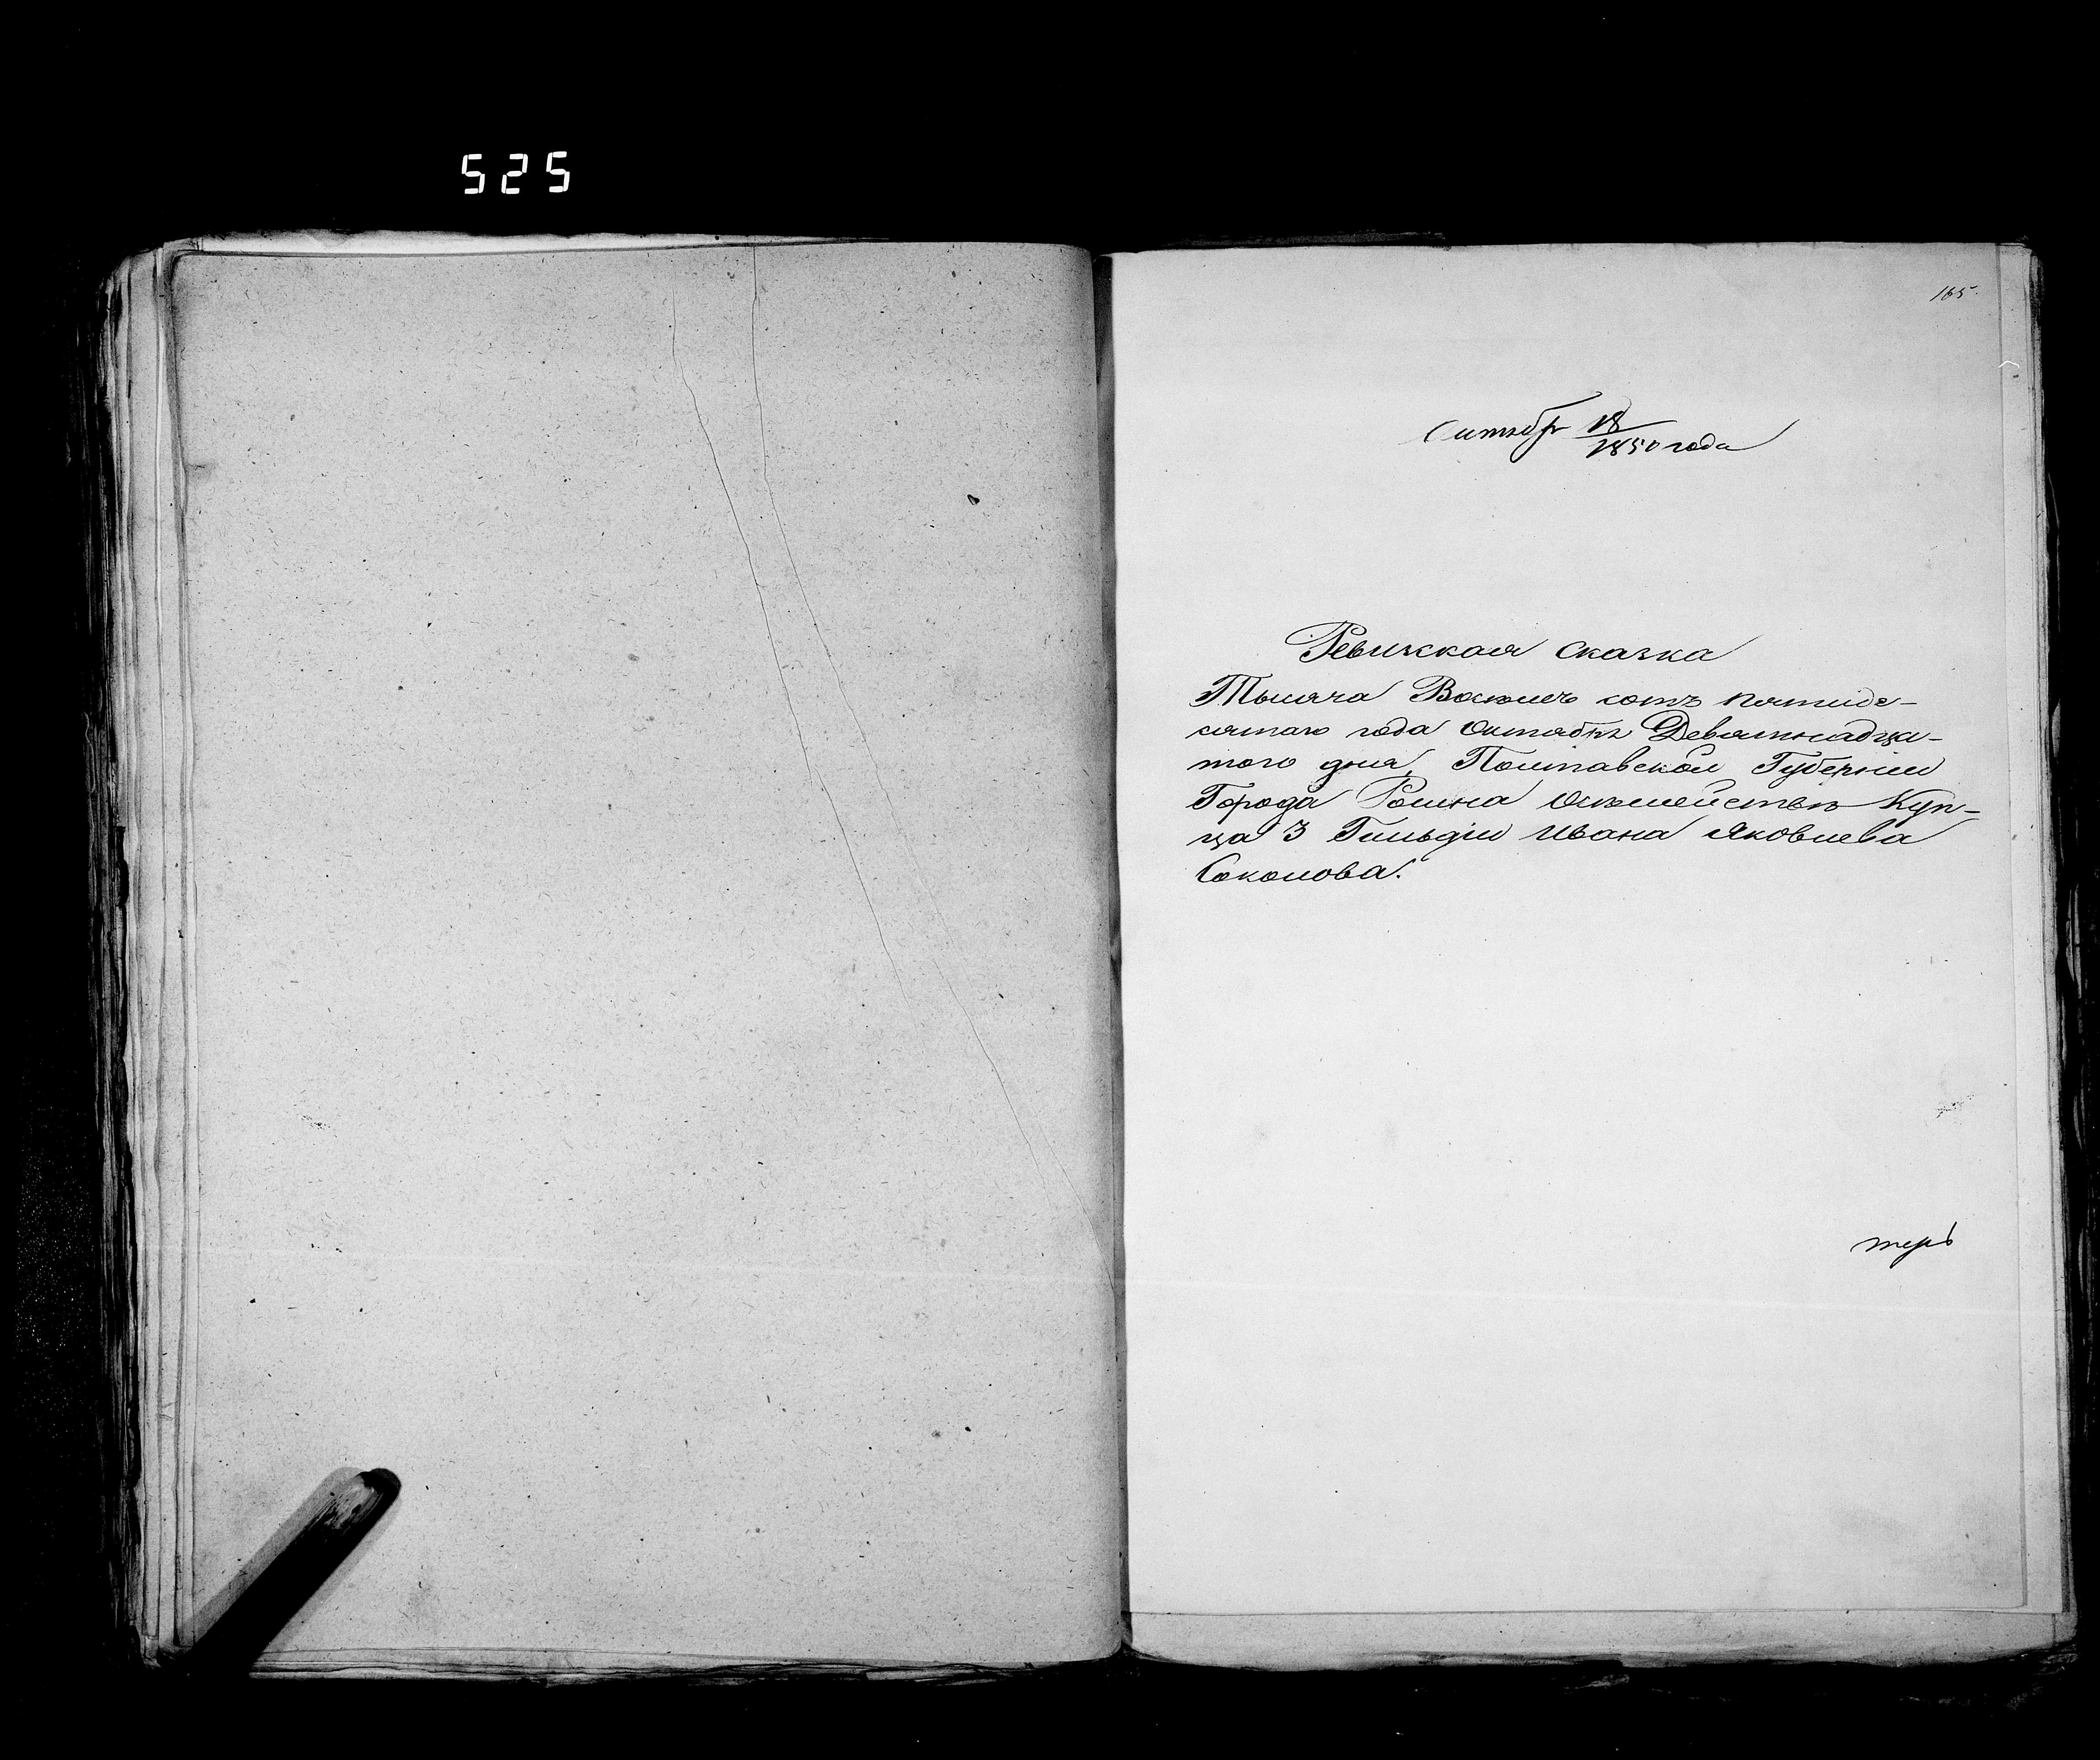 525
165.
Октябр 18
1850 года
Ревижская сказка
Тысяча Восемь сотъ пятиде-
сятаго года Октября Девятнадца-
того дня, Полтавской Губернии
Города Ромна Осемействѣ Куп-
ца 3 Гильдіи Ивана Яковлева
Соколова.